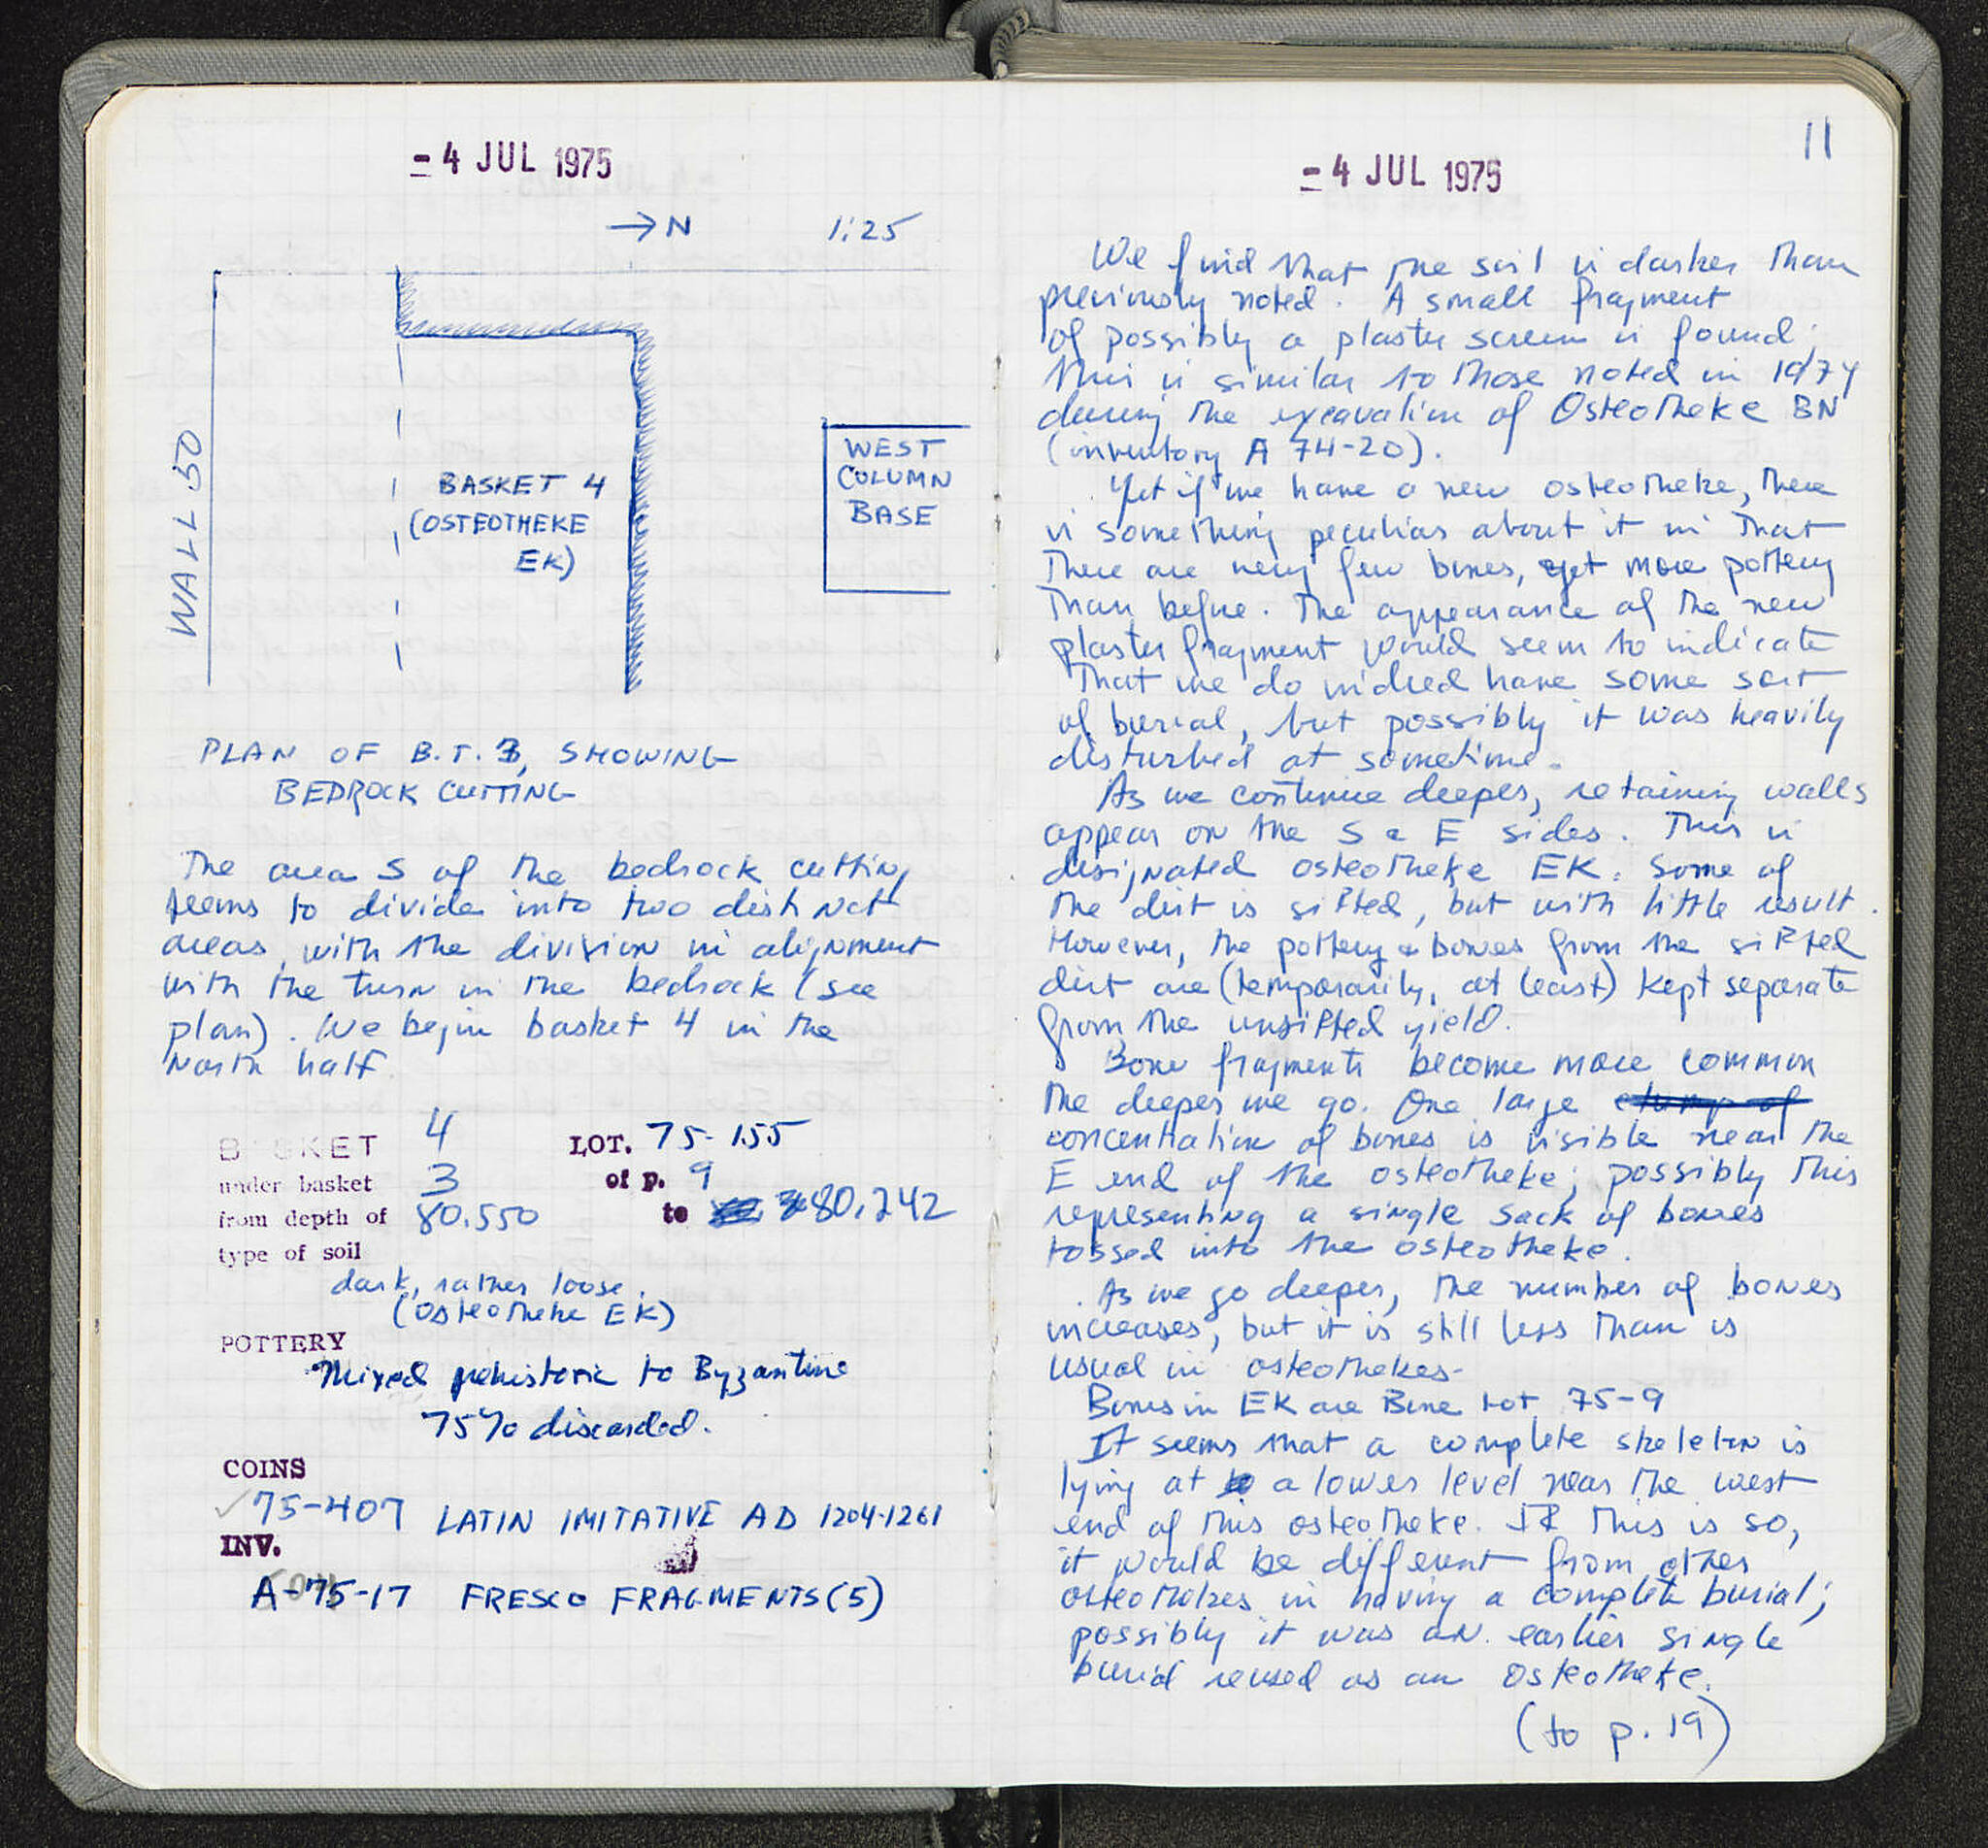 - 4 JUL 1975
→ N 1:25
WALL 50
BASKET 4
(OSTEOTHEKE
EK)
WEST
COLUMN
BASE
PLAN OF B.T. 3, SHOWING
BEDROCK CUTTING
The area S of the bedrock cutting
seems to divide into two distinct
areas, with the division in alignment
with the turn in the bedrock (see
plan). We begin basket 4 in the
North half.
BASKET 4 LOT. 75-155
under basket 3 of p. 9
from depth of 80.550 to 80.242
type of soil
dark, rather loose.
(Osteotheke EK)
POTTERY
Mixed prehistoric to Byzantine
75% discarded.
COINS
✓75-407 LATIN IMITATIVE AD 1204-1261
INV.
A-75-17 FRESCO FRAGMENTS (5)
11
- 4 JUL 1975
We find that the soil is darker than
previously noted. A small fragment
of possibly a plaster screen is found;
this is similar to those noted in 1974
during the excavation of Osteotheke BN
(inventory A 74-20).
Yet if we have a new osteotheke, there
is something peculiar about it in that
there are very few bones, yet more pottery
than before. The appearance of the new
plaster fragment would seem to indicate
that we do indeed have some sort
of burial, but possibly it was heavily
disturbed at sometime.
As we continue deeper, retaining walls
appear on the S & E sides. This is
designated osteotheke EK. Some of
the dirt is sifted, but with little result.
However, the pottery & bones from the sifted
dirt are (temporarily, at least) kept separate
from the unsifted yield.
Bone fragments become more common
the deeper we go. One large clump of
concentration of bones is visible near the
E end of the osteotheke; possibly this
representing a single sack of bones
tossed into the osteotheke.
As we go deeper, the number of bones
increases, but it is still less than is
usual in osteothekes.
Bones in EK are Bone Lot 75-9
It seems that a complete skeleton is
lying at a lower level near the west
end of this osteotheke. If this is so,
it would be different from other
osteothekes in having a complete burial;
possibly it was an earlier single
burial reused as an osteotheke.
(to p. 19)